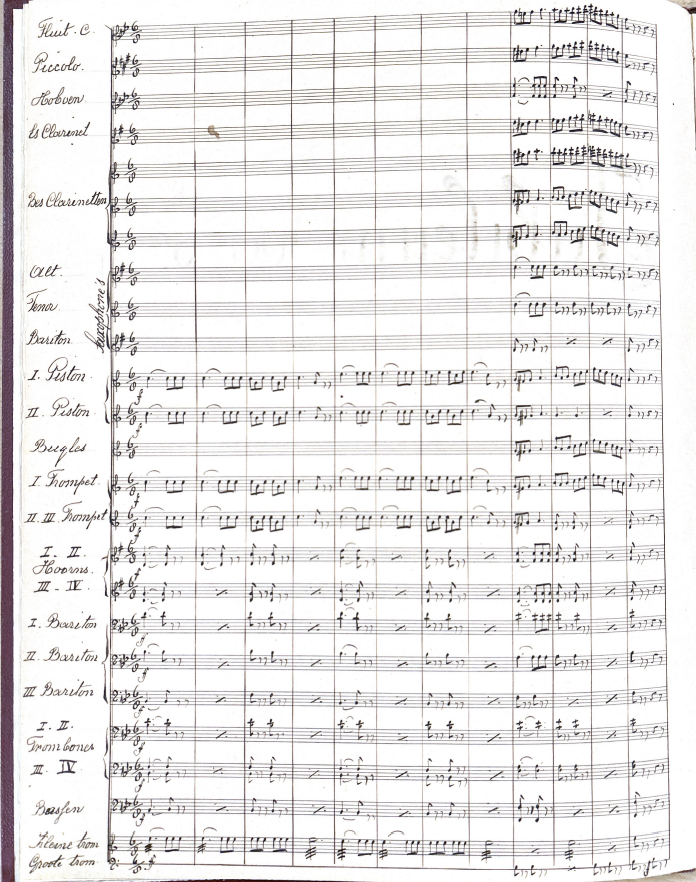 Fluit. C.
Piccolo.
Hoboen
Es Clarinet
Bes Clarinetten
Alt.
Tenor
Bariton
Saxophone's
I. Piston.
II. Piston.
Bugles
I. Trompet.
II. III. Trompet
I. II.
Hoorns.
III. IV.
I. Bariton
II. Bariton
III Bariton
I. II.
Trombones
III. IV
Bassen
Kleine trom
Groote trom